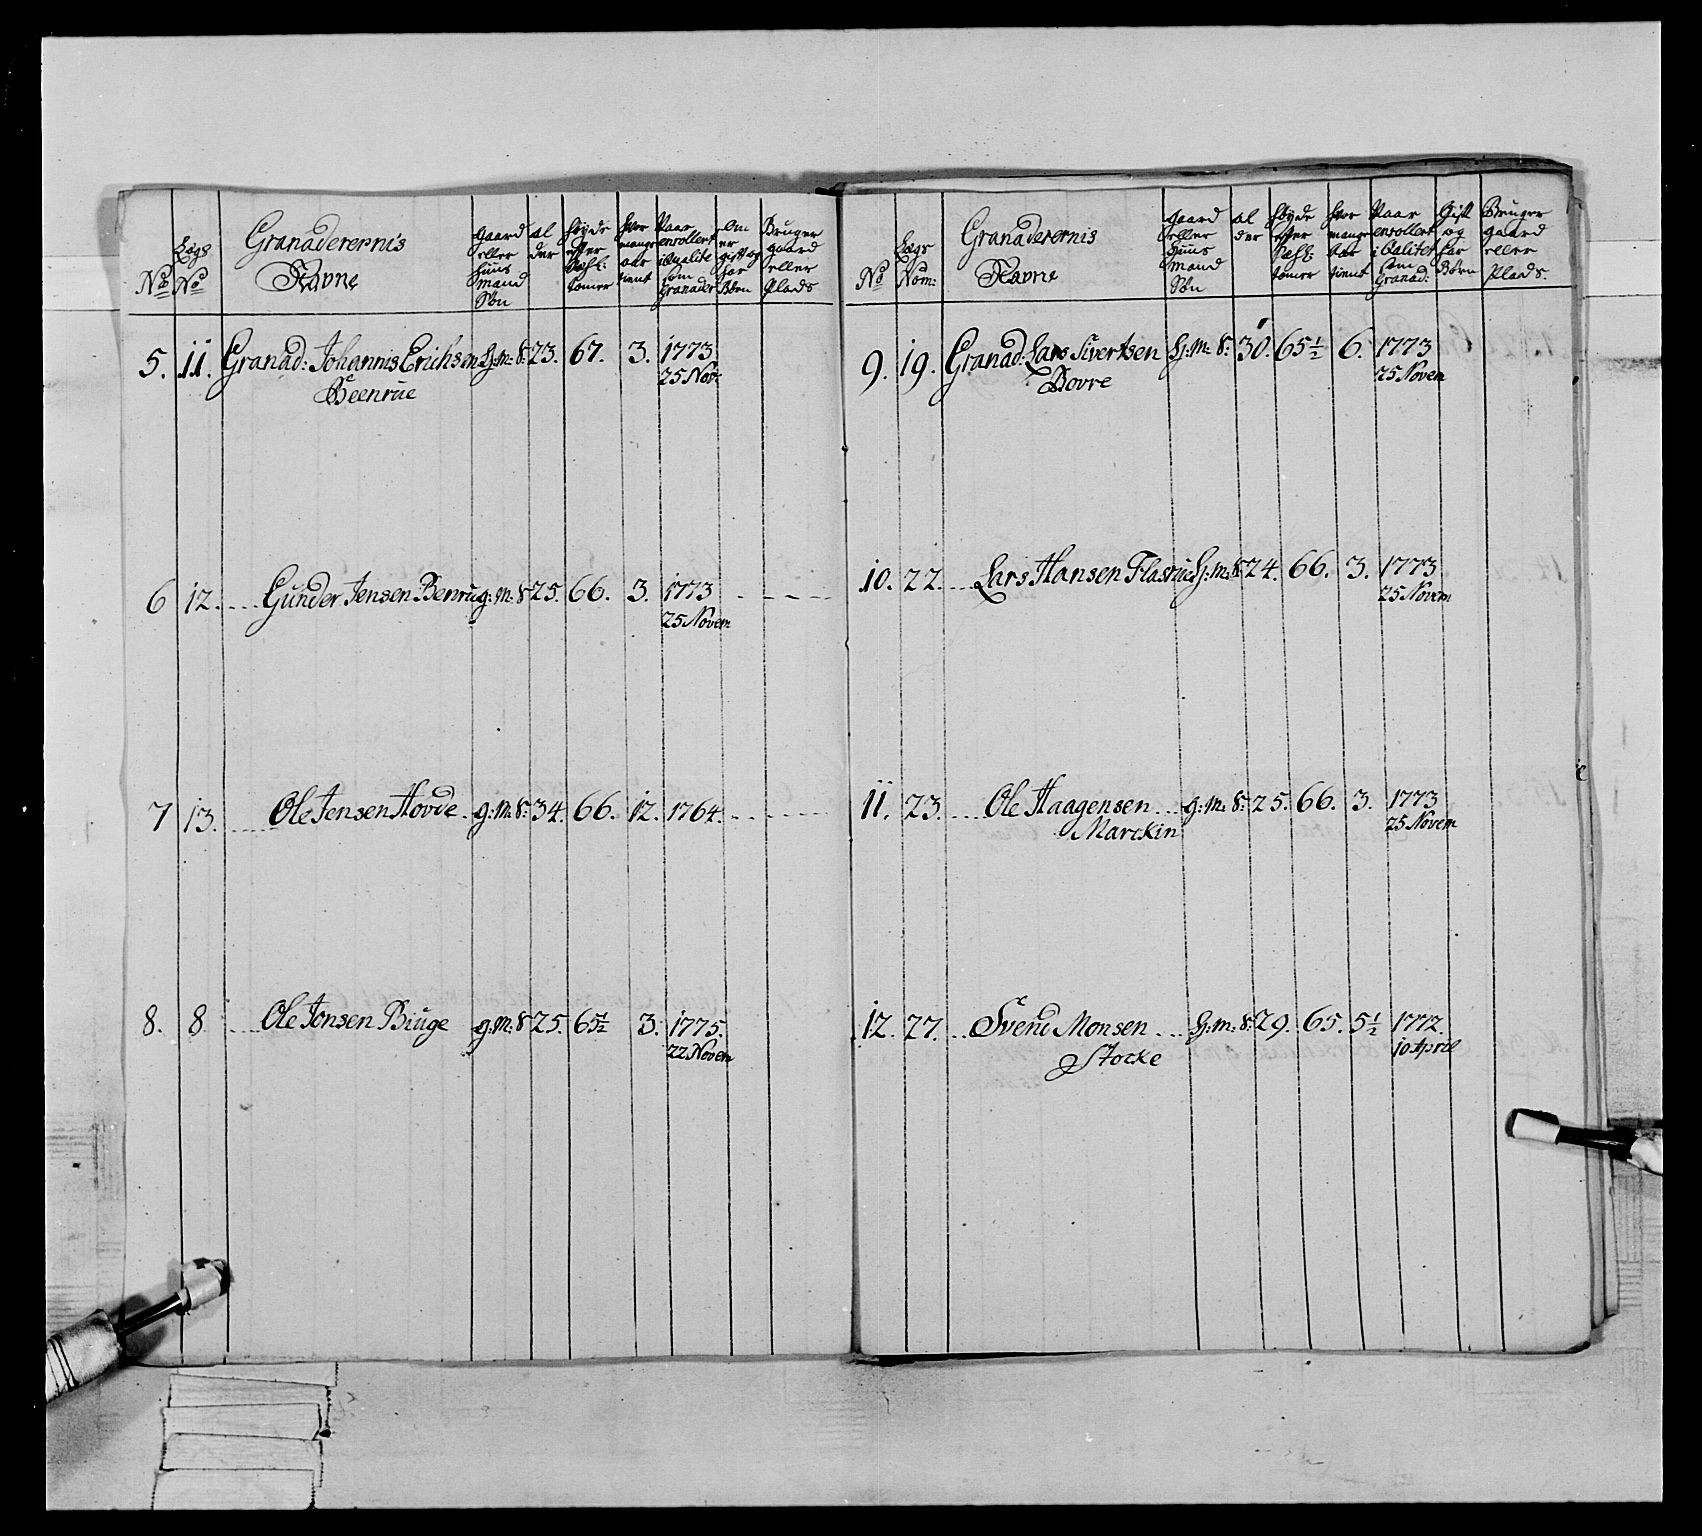 No
Lægs No
Granaderernis Navne
gaard eller Huus mand Søn
al der
Høyde efter Sahl: tomer
hvor mange aar tient
Naar enrollert i Qualite som Granader
Om er gift og har Børn
Bruger gaard eller Plads
5. 11. Granad: Johannis Erichsen H: m: S: 23. 67. 3. 1773
Beenrue 25 Nov:
6 12. Gunder Jensen Benrue g: m: S 25. 66. 3. 1773
25 Novem
7 13. Ole Jensen Hovde g: m: S: 34. 66. 12. 1764.
8. 8 Ole Jonsen Biuge g: m: S 25. 65½ 3. 1775.
22 Novem
No
Lægs Num:
Granaderernis Navne
gaard eller Huus mand Søn
al der
Høyde efter Sahl: tomer
hvor mange aar tient
Naar enrollert i Qualitet som Granad:
Gift og har Børn
Bruger gaard eller Plads.
9. 19. Granad: Lars Sivertsen H: m: S: 30. 65½ 6. 1773
Dovre 25 Novem
10. 22. Lars Hansen Flasrue H: m: S: 24. 66. 3. 1773
25 Novem
11. 23. Ole Haagensen g: m: S: 25. 66. 3. 1773
Marckin 25 Novem
12. 27. Svend Monsen H: m: S: 29. 65. 5½ 1772.
Stocke 10 April